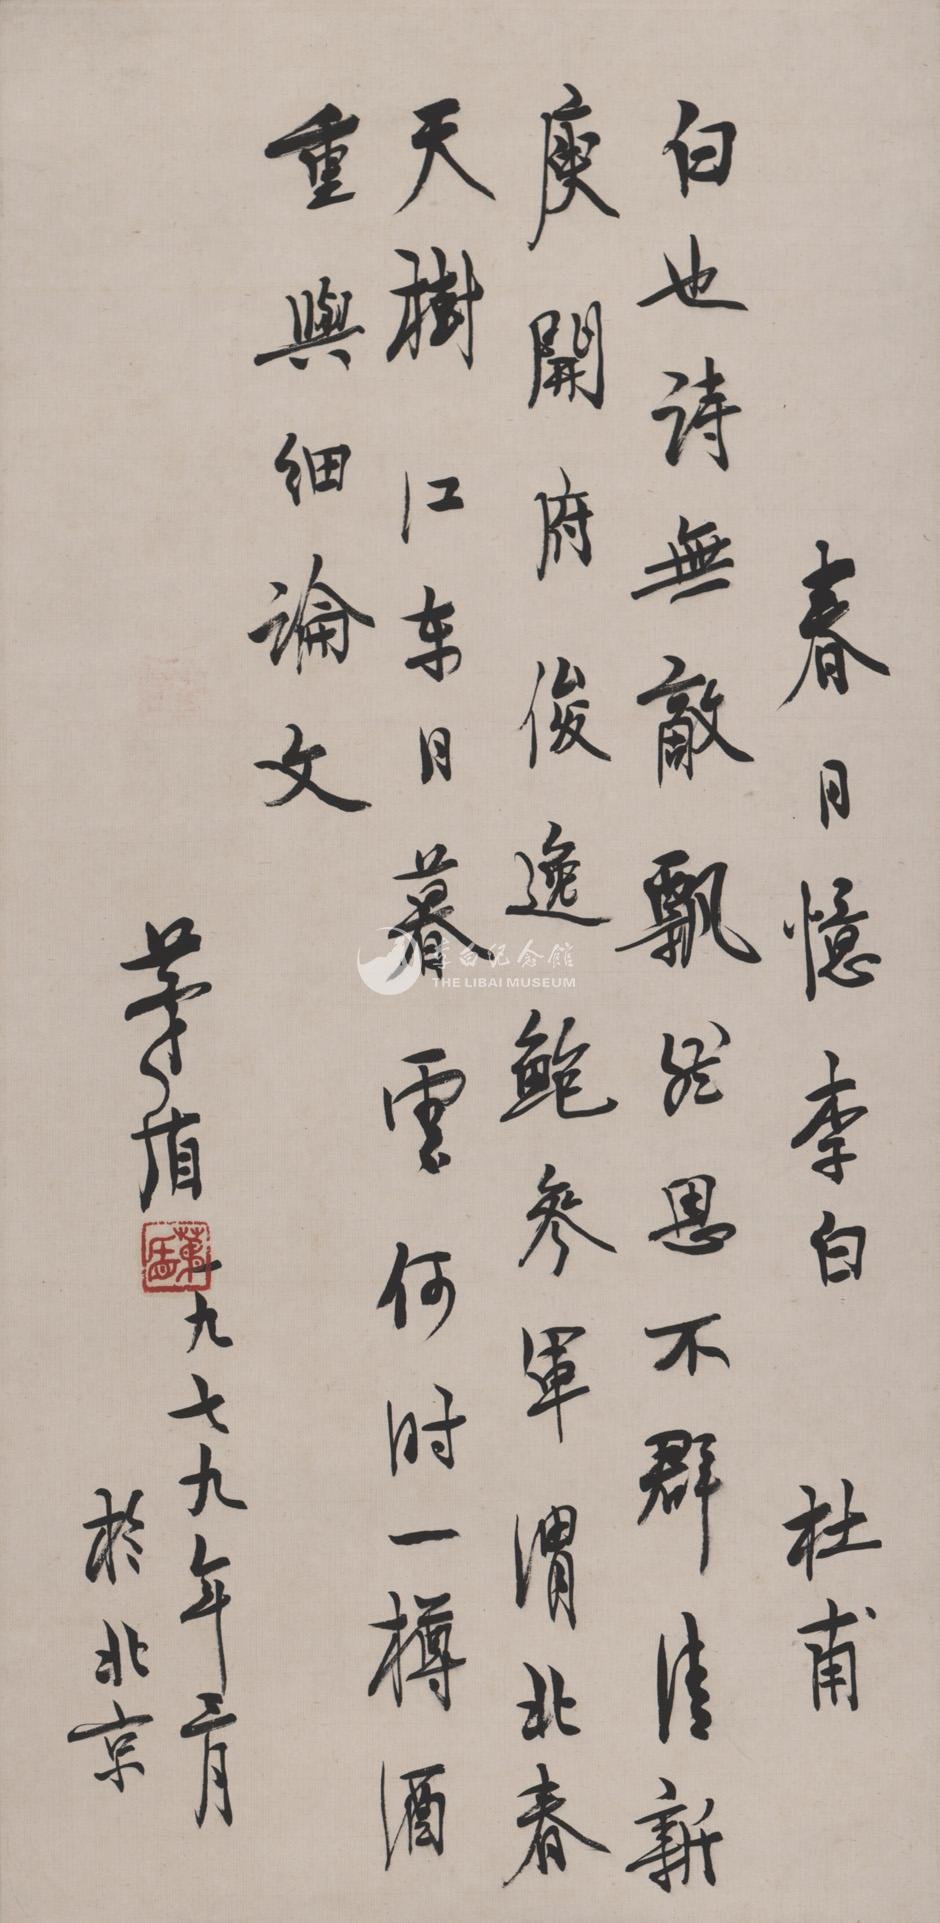 春日憶李白 杜甫
白也詩無敵飄然思不群清新
庾開府俊逸鮑參軍渭北春
天樹江东日暮雲何时一樽酒
重與細論文
茅盾
一九七九年三月
於北京
李白纪念館
THE LIBAI MUSEUM